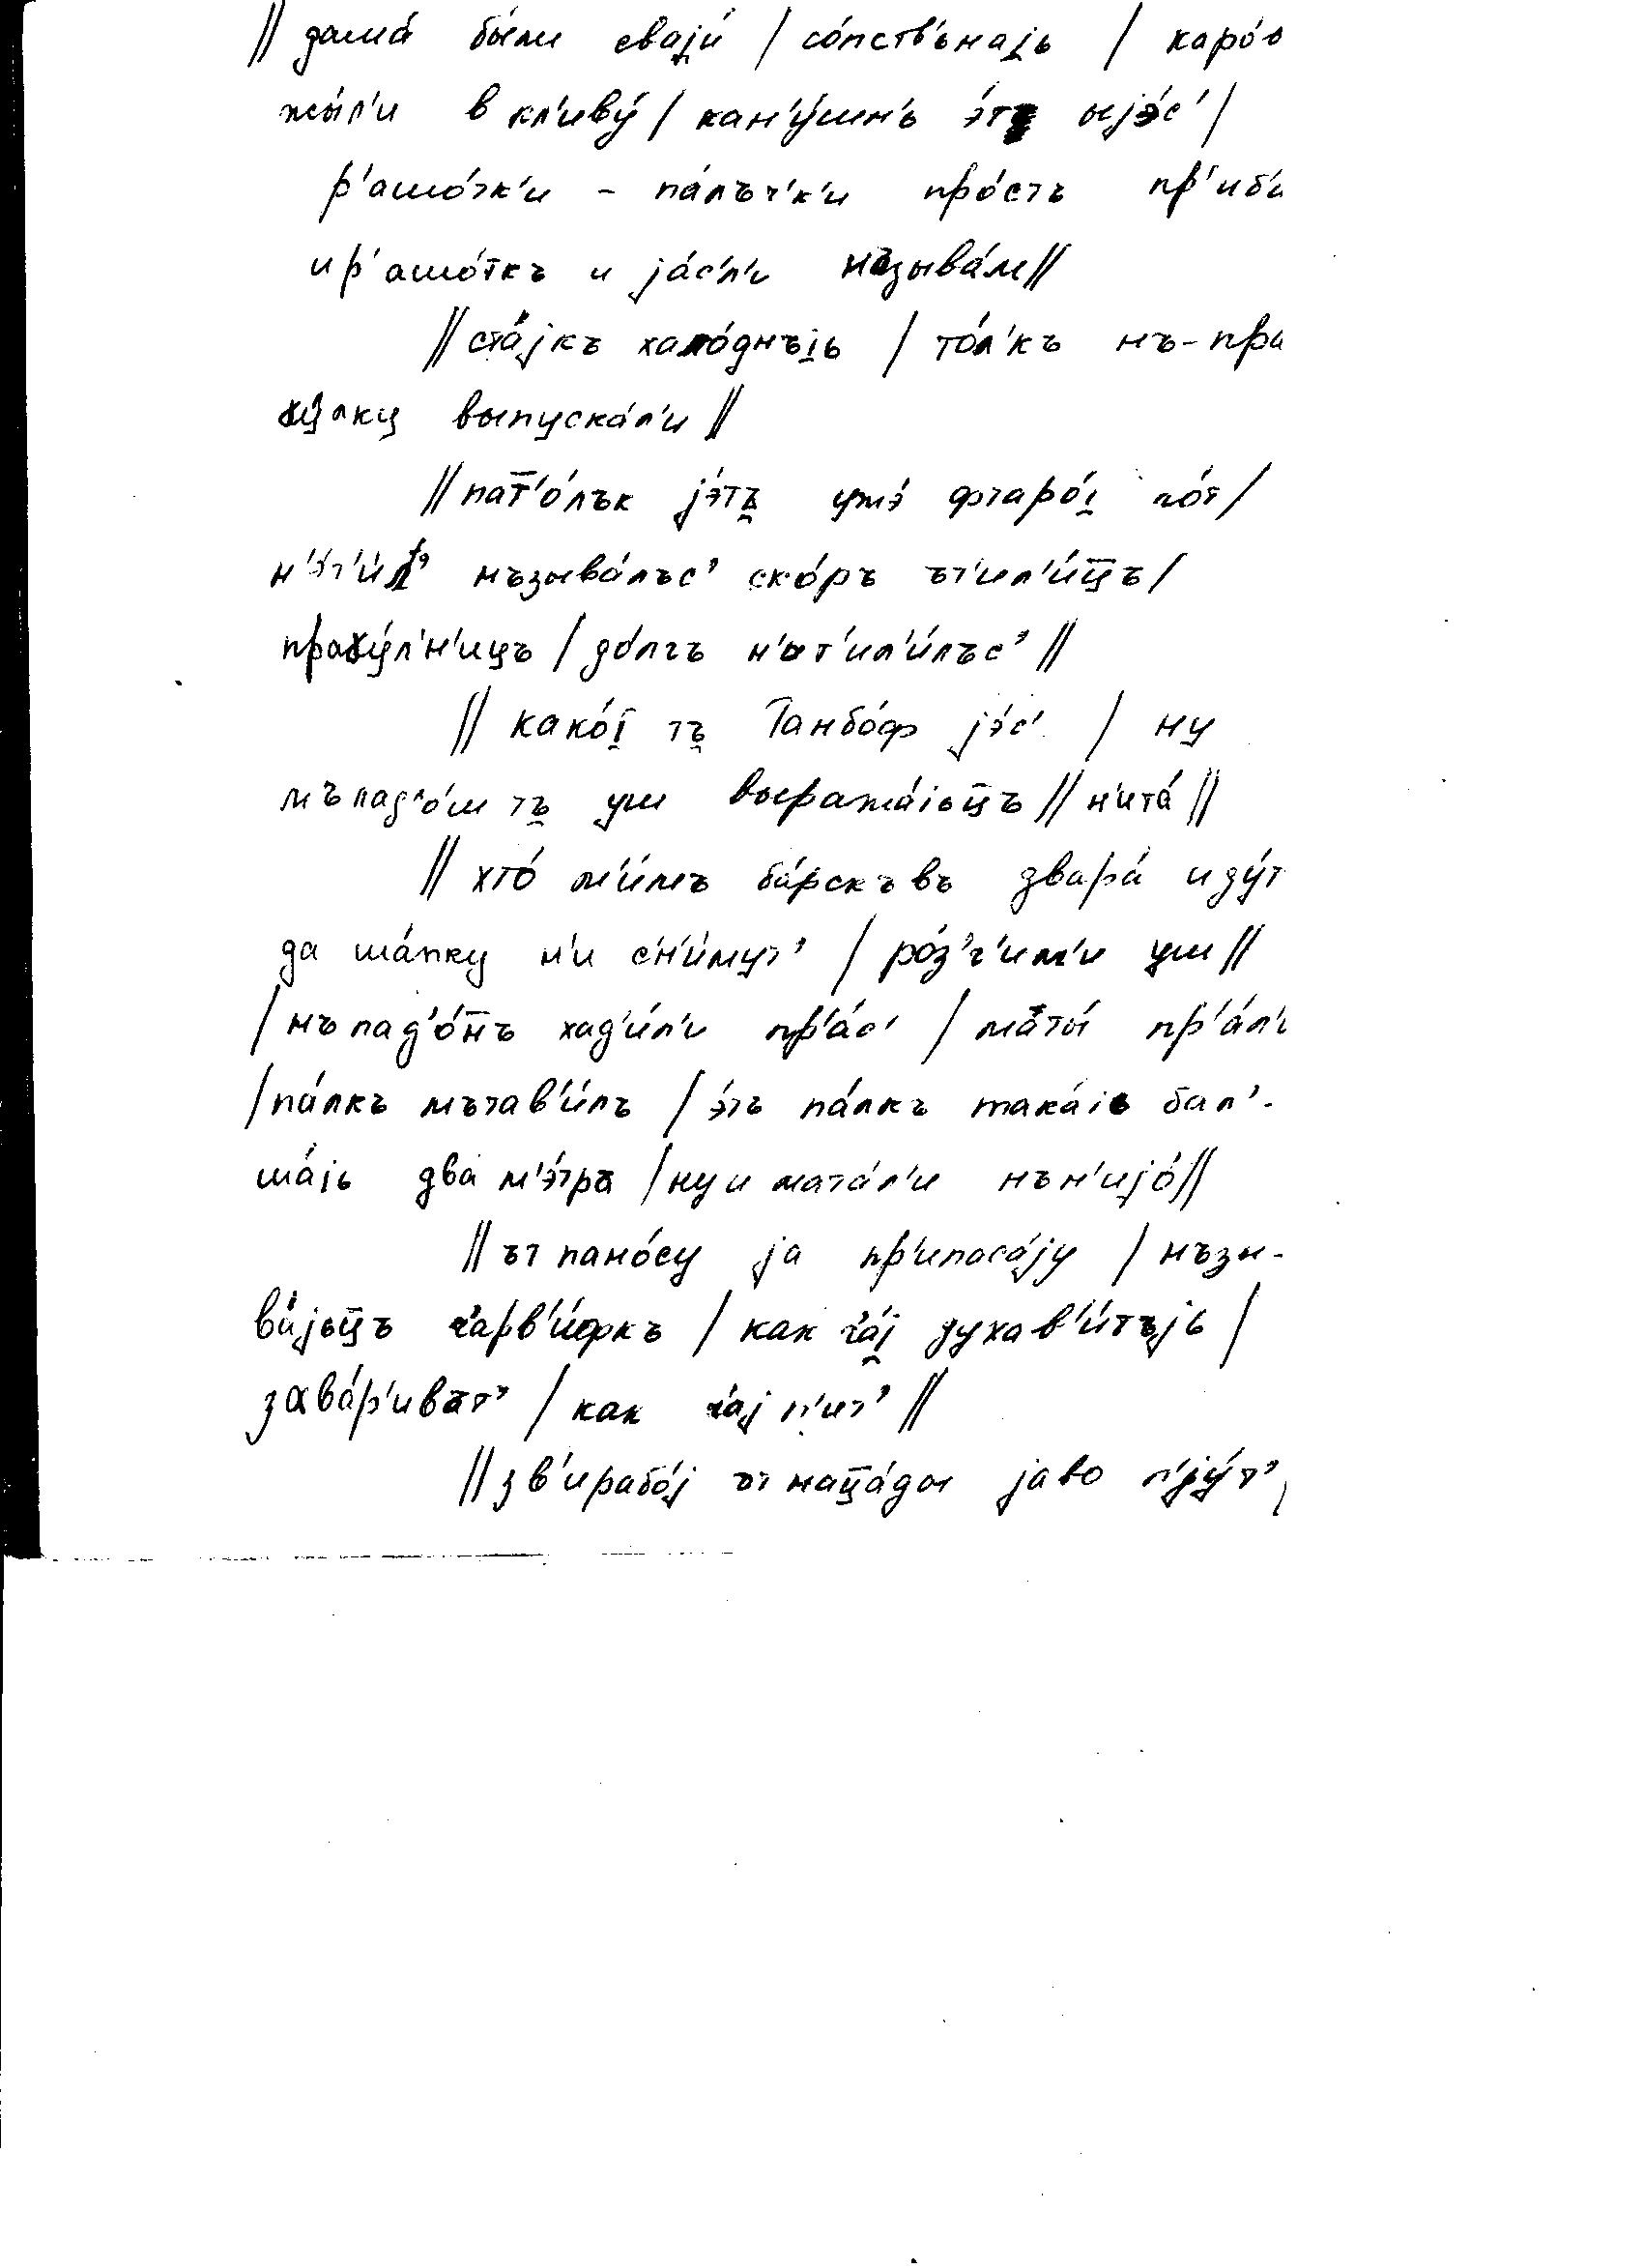 // дама́ бы́ли сваjи́ / со́пств'ьнаjь / каро́в
жы́л'и в кл'иву́ / кан'у́шн'ь э́тъ ыjэ́с' /
р'ашо́тк'и – па́лъч'к'и про́стъ пр'иб'и
ир'ашо́ткъ и jа́с'л'и нъзыва́л//
// ста́jкъ хало́днъjь / то́л'къ нъ-пра
γу́лку выпуска́л'и //
// пат'о́лък jэ́тъ ужэ́ фтаро́j γо́т /
нъзыва́лъс' ско́ръ ът'ил'и́цъ /
праγу́л'н'ицъ / до́лγъ н'ът'ил'и́лъс' //
// како́j тъ Танбо́ф jэ́с' / ну
мълад'о́ш тъ уш выража́jьцъ // н'ита́ //
// хто́ м'и́мъ ба́рскъвъ двара́ иду́т
да ша́пку н'и с'н'и́мут' / ро́з'г'им'и уш //
/ нъ пад'о́нъ хад'и́л'и пр'а́с' / маты́ пр'а́л'и
/ па́лкъ мътав'и́лъ / э́тъ па́лкъ така́jь бал'-
ша́jь два м'э́тръ / ну и мата́л'и нън'иjо́ //
// ът пано́су jа пр'ипаса́jу / нъзы-
ва́jьцъ ч'арв'и́фкъ / как ч'а́j духав'и́тъjь /
зава́р'иват' / как ч'аj п'ит' //
// зв'ирабо́j ът наца́ды jаво п'jу́т'